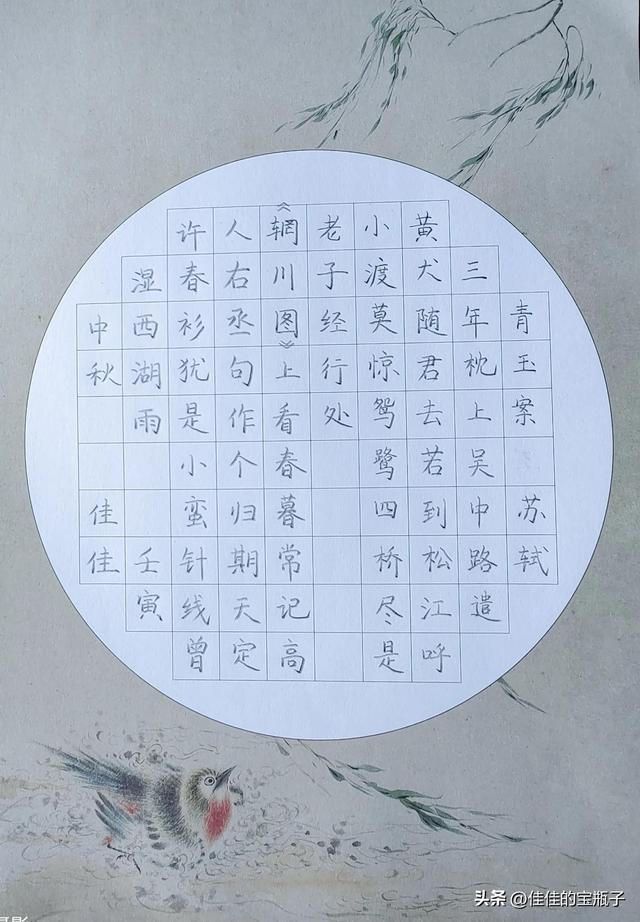 青玉案 苏轼
三年枕上吴中路遣
黄犬随君去若到松江呼
小渡莫惊鸳鹭四桥尽是
老子经行处
《辋川图》上看春暮常记高
人右丞句作个归期天定
许春衫犹是小蛮针线曾
湿西湖雨 壬寅
中秋 佳佳
头条 @佳佳的宝瓶子